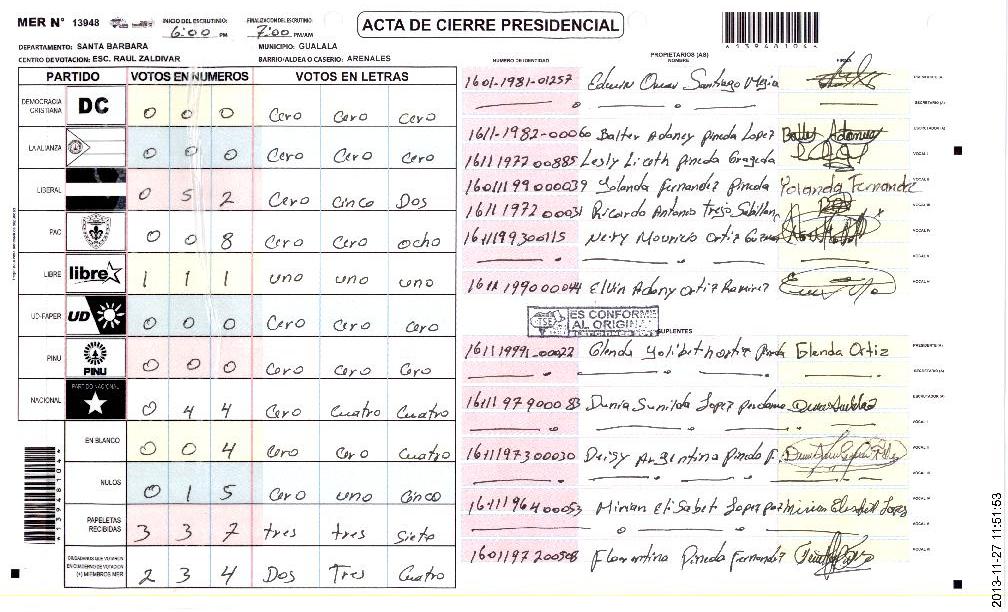 MER N° 13948 INICIO DEL ESCRUTINIO: 6:00 PM FINALIZACION DEL ESCRUTINIO: 7:00 PM/AM
ACTA DE CIERRE PRESIDENCIAL
*139481044*
DEPARTAMENTO: SANTA BARBARA MUNICIPIO: GUALALA
CENTRO DE VOTACION: ESC. RAUL ZALDIVAR BARRIO/ALDEA O CASERIO: ARENALES
PARTIDO VOTOS EN NUMEROS VOTOS EN LETRAS
DEMOCRACIA CRISTIANA DC 0 0 0 Cero Cero cero
LA ALIANZA 0 0 0 Cero Cero Cero
LIBERAL 0 5 2 Cero Cinco Dos
PAC 0 0 8 Cero Cero ocho
LIBRE libre 1 1 1 uno uno uno
UD-FAPER UD 0 0 0 Cero Cero cero
PINU PINU 0 0 0 Cero Cero Cero
NACIONAL PARTIDO NACIONAL 0 4 4 Cero Cuatro Cuatro
EN BLANCO 0 0 4 Cero Cero Cuatro
NULOS 0 1 5 Cero uno Cinco
PAPELETAS RECIBIDAS 3 3 7 tres tres Siete
CIUDADANOS QUE VOTARON EN CUADERNO DE VOTACION (+) MIEMBROS MER 2 3 4 Dos Tres Cuatro
*139481044*
NUMERO DE IDENTIDAD PROPIETARIOS (AS) NOMBRE FIRMA
1601-1981-01257 Edwin Omar Santiago Mejia PRESIDENTE (A)
SECRETARIO (A)
1611-1982-00060 Balter Adaney Pineda Lopez ESCRUTADOR (A)
1611 1972 00885 Lesly Liceth Pineda VOCAL I
1601199000039 Yolanda Fernandez Pineda Yolanda Fernandez VOCAL II
1611 1972 00031 Ricardo Antonio Trejo Sabillon VOCAL III
1611199300115 Nery Mauricio Ortiz VOCAL IV
VOCAL V
1611199000044 Elvin Adony Ortiz Ramirez VOCAL VI
TSE ES CONFORME AL ORIGINAL
SUPLENTES
16111991-00022 Glenda Yolibeth ortiz Pineda Glenda Ortiz PRESIDENTE (A)
SECRETARIO (A)
1611197900083 Dunia Sunilda Lopez ESCRUTADOR (A)
VOCAL I
1611197300030 Deisy Argentina Pineda F. VOCAL II
VOCAL III
1611196400053 Mirian Elisabet Lopez VOCAL IV
VOCAL V
1601197200508 Florentina Pineda Fernandez VOCAL VI
2013-11-27 11:51:53